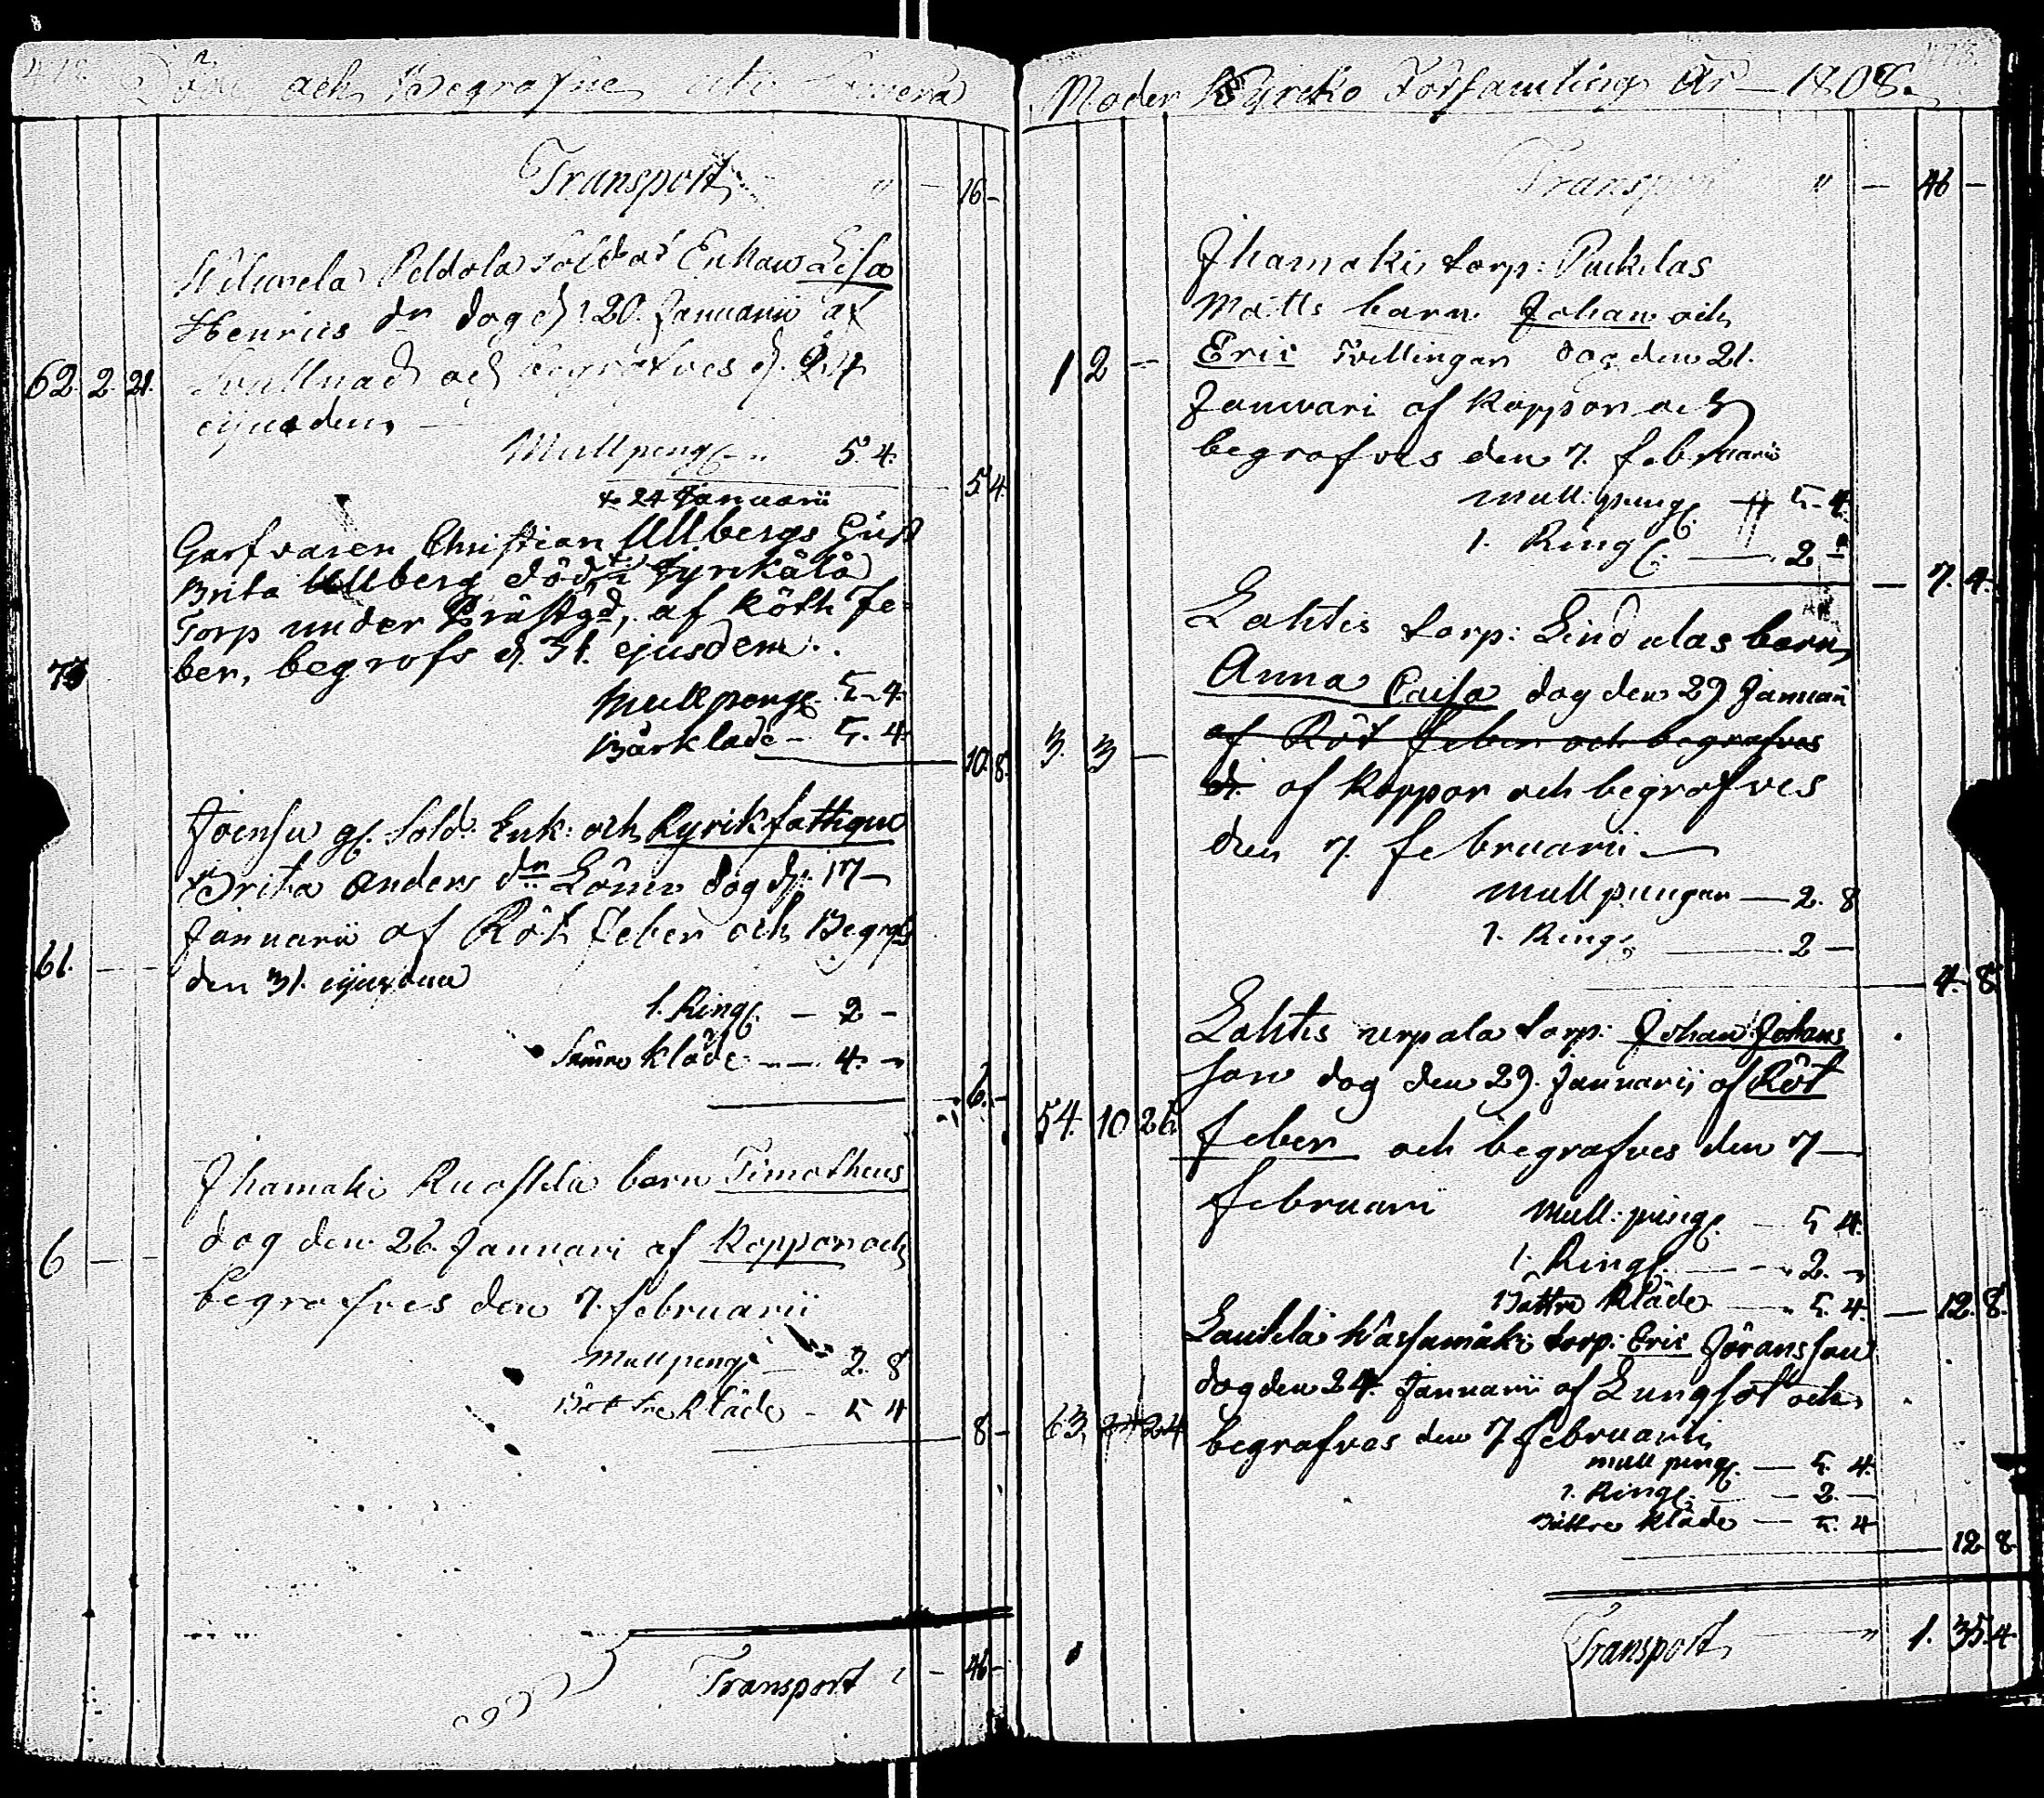 Döde och Begrafne uti Somero
Transport " — 16 —
Wilurela Peldola Soldat Enkan Lisa
Henrics dr dog d. 20. Januarii af
62. 2. 21. Svullnad och begrafves d. 24
ejusdem —
Mullpeng. " 5. 4.
5 4
d. 24 Januarii
Garfvaren Christian Ullbergs Hust
Brita Ullberg död i Jyrkälä
Torp under Prästgd, af Röth fe-
ber, begrofs d. 31. ejusdem.
73
Mullpeng. 5. 4.
Bårkläde — 5. 4
10. 8.
Joensu gl. Sold. Enk: och Kyrikfattigue
Brita Anders dr Löuw dog d. 17
Januarii af Röt feber och Begrofs
61. — — den 31. ejusdem
1. Ring. — 2 —
Sämre kläde — 4. —
6. —
Jhamaki Ruostela barn Timotheus
dog den 26. Januari af Koppor och
6 — —
begrafves den 7. februarii
Mullpeng. — 2. 8
Bättre kläde — 5 4
8 —
Transport — 46 —
Moder Kyrcko Församling År — 1808.
Transport " — 46 —
Jhamaki torp: Puckelas
Matts barn Johan och
1 2 — Eric Tvillingar dog den 21.
Januari af Koppor och
begrafves den 7. februarii
Mull: peng. 5. 4.
1. Ring. — 2 —
— 7. 4.
Lahtis torp: Lindulas barn
Anna Caisa dog den 29 Januari
3. 3 — af Röt feber och begrafves
d. af Koppor och begrafves
den 7. februarii —
Mull pungar — 2. 8
1. Ring. — 2 —
4. 8.
Lahtis urpala torp: Johan Johans
son dog den 29. Januarij af Röt
54. 10 26. feber och begrafves den 7 —
februarii Mull: peng. — 5 4.
1. Ring. — 2. —
Bättre Kläde — 5. 4 — 12. 8.
Lautela Wassamäki torp: Eric Jöransson
dog den 24. Januarii af Lungsot och
63. 2 24 begrafves den 7 februarii
Mull peng. — 5. 4.
1. Ring. — 2. —
Bättre Kläde — 5. 4
12. 8.
Transport " 1. 35. 4.